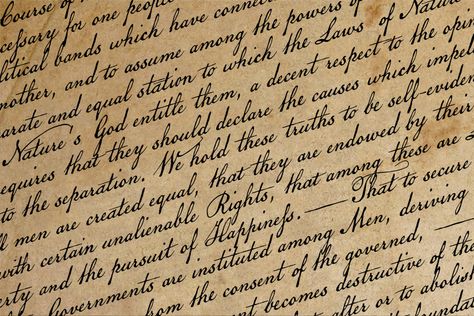 Course of
cessary for one people
litical bands which have connec
nother, and to assume among the powers of
arate and equal station to which the Laws of Nature
Nature's God entitle them, a decent respect to the opi
equires that they should declare the causes which impel
to the separation. We hold these truths to be self-evide
ll men are created equal, that they are endowed by their
with certain unalienable Rights, that among these are L
erty and the pursuit of Happineſs. — That to secure
Governments are instituted among Men, deriving
from the consent of the governed, —
nt becomes destructive of the
alter or to abolish